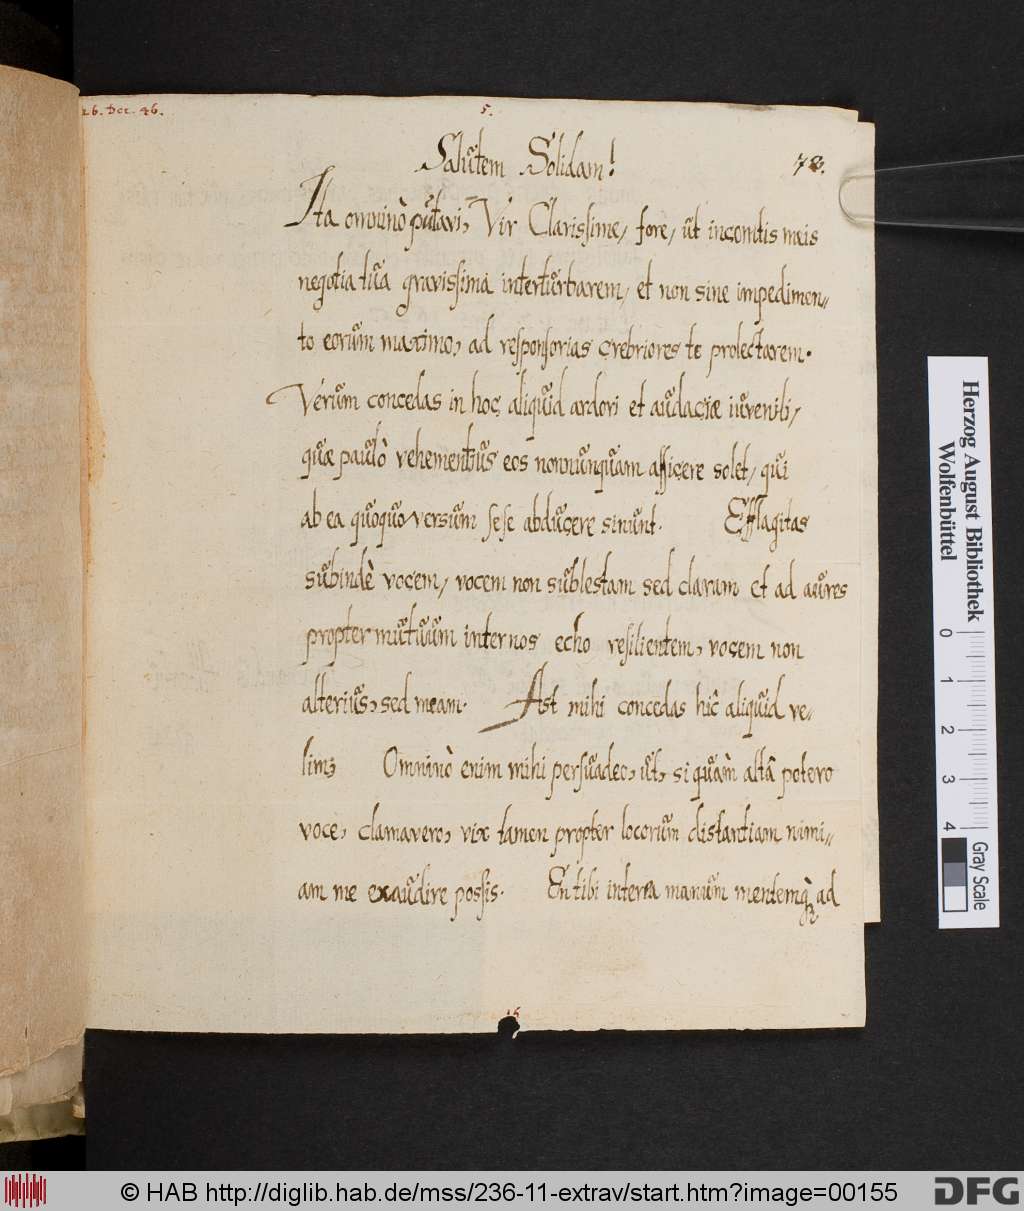 26. Dec. 46.
5.
Salutem Solidam!
78.
Ita omninò putavi, Vir Clarissime, fore, ut incomtis meis
negotia tua gravissima interturbarem, et non sine impedimen-
to eorum maximo, ad responsorias crebriores te prolectarem.
Verum concedas in hoc aliquid ardori et audaciæ iuvenili,
quæ paulò vehementius eos nonnunquam afficere solet, qui
ab ea quoquo versum sese abducere sinunt. Efflagitas
subindè vocem, vocem non sublestam sed claram et ad aures
propter mutuum inter nos echo resilientem, vocem non
alterius, sed meam. Ast mihi concedas hîc aliquid ve-
lim; Omninò enim mihi persuadeo, ut, si quàm altâ potero
voce, clamavero, vix tamen propter locorum distantiam nimi-
am me exaudire possis. En tibi interea manum mentemq̀ ad
15
Herzog August Bibliothek
Wolfenbüttel
0 1 2 3 4
Gray Scale
© HAB http://diglib.hab.de/mss/236-11-extrav/start.htm?image=00155
DFG